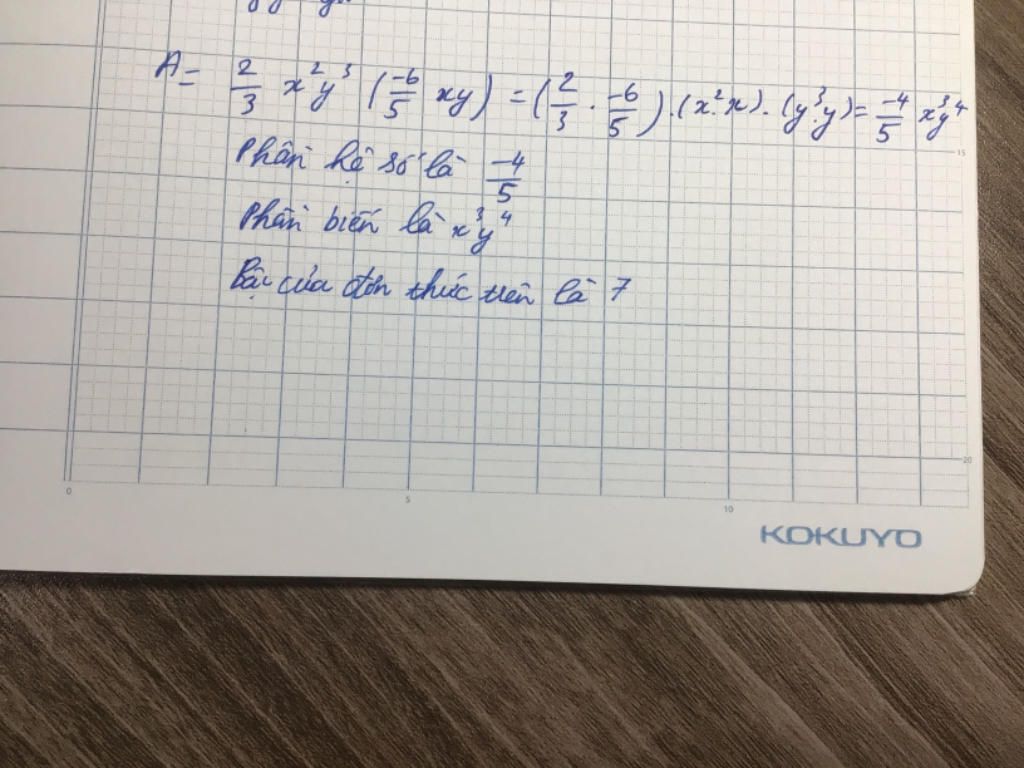 A = 2/3 x²y³ (-6/5 xy) = (2/3 . -6/5) . (x².x) . (y³.y) = -4/5 x³y⁴
Phần hệ số là -4/5
Phần biến là x³y⁴
Bậc của đơn thức trên là 7
15
20
0 5 10
KOKUYO